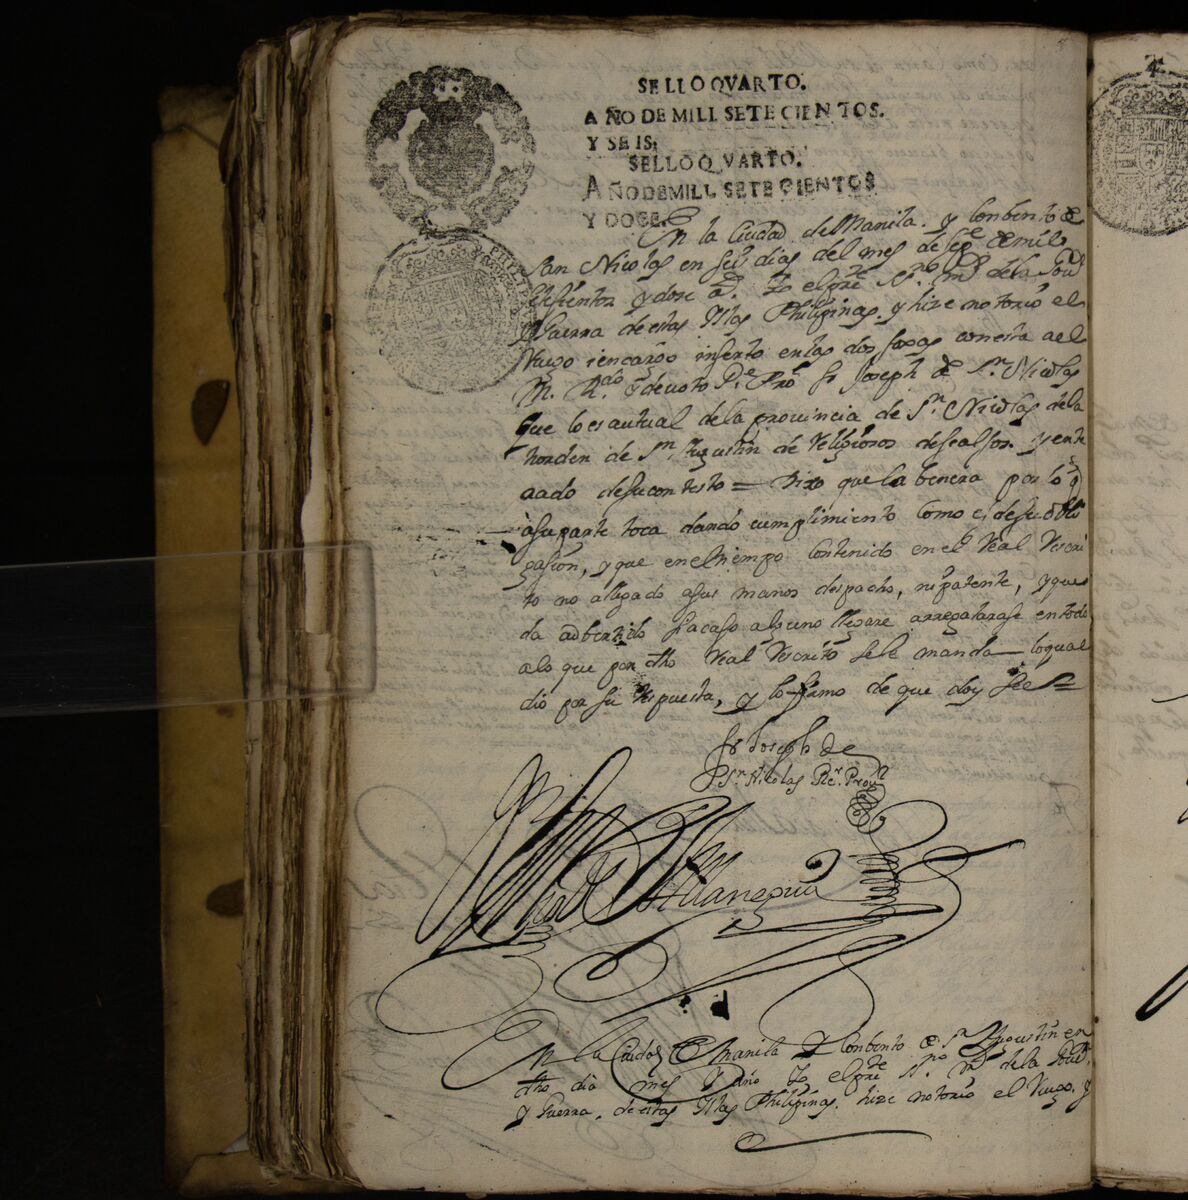 SELLO QVARTO.
AÑO DE MILL SETECIENTOS.
Y SEIS.
SELLO QVARTO.
AÑO DE MILL SETECIENTOS
Y DOCE.
En la Ciudad de Manila y Conbento de
San Nicolas en seis dias del mes de Sepe de mil
setesientos y dose as. Yo el preste sno mor de la Gouon
y Guerra de estas Yslas Philipinas, y hize notorio el
Ruego i encargo inserto en las dos foxas con esta a el
M. Rdo y deuoto Pe Pro fr Joseph de Sn Nicolas
que lo es autual de la provincia de Sn Nicolas de la
horden de Sn Augustin de Religiosos descalsos. y ente
dado de su contesto = Dixo que la benera por lo q
a su parte toca dando cumplimiento como es de su obli
gasion, y que en el tiempo contenido en el Real Rescri
to no a llegado a sus manos despacho, ni patente, y que
da adbertido si acaso alguno llegare arreglarase en todo
a lo que por dho Real Rescrito se le manda lo qual
dio por su respuesta, y lo firmo de que doy fee =
fr Joseph de
Sn Nicolas Pe. Proul
Villanequia
En la Ciudad de Manila y Conbento de Sn Augustin en
dho dia mes y año Yo el preste sno mor de la Gouon
y Guerra, de estas Yslas Philipinas, hize notorio el Ruego, y
4